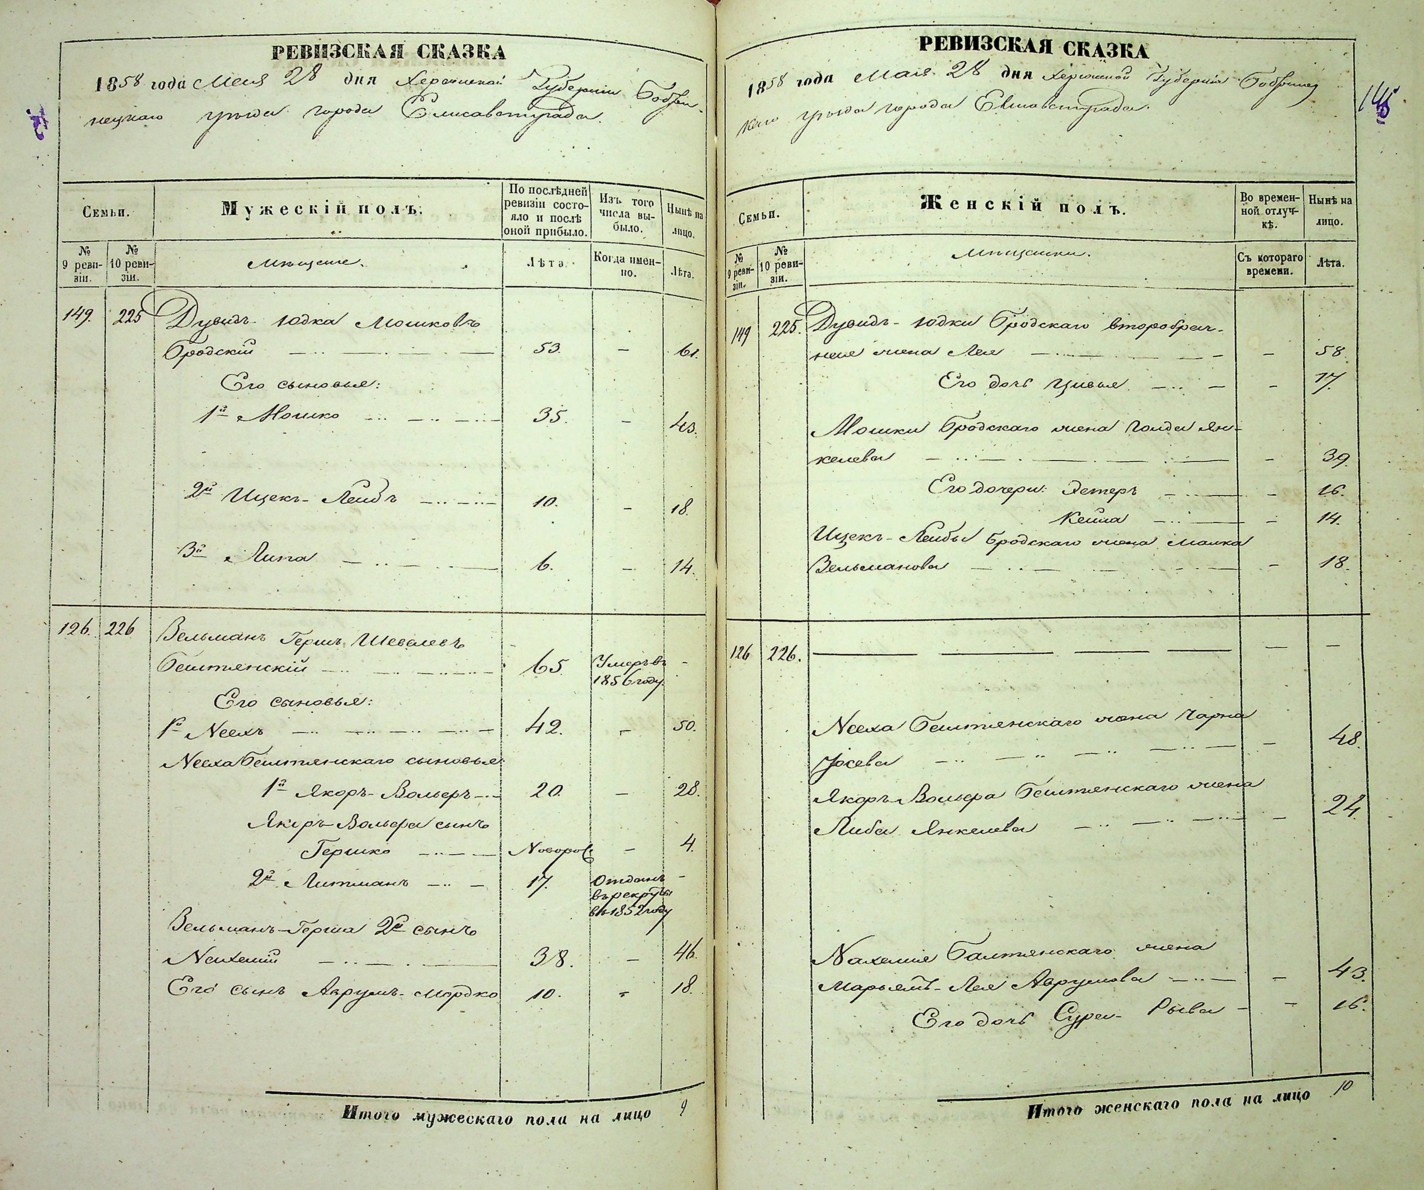 РЕВИЗСКАЯ СКАЗКА
1858 года Мая 28 дня Херсонской Губернiи Бобри-
нецкаго уѣзда города Елисаветграда.
Семьи.
Мужескiй полъ.
По послѣдней ревизiи состо-
яло и послѣ
оной прибыло.
Изъ того
числа вы-
было.
Нынѣ на
лицо.
№
9 реви-
зiи.
№
10 реви-
зiи.
Мѣщане.
Лѣта.
Когда имен-
но.
Лѣта.
149. 225 Дувидъ-Юдка Мошковъ
Бродскiй 53. – 61.
Его сыновья:
1й Мошко 35. – 43.
2й Ицекъ-Лейбъ 10. – 18.
3й Липа 6. – 14.
126. 226 Вельманъ Гершъ Шевелевъ
Балтянскiй 65 Умеръ въ –
1856 году
Его сыновья:
1й Неехъ 42. – 50.
Нееха Балтянскаго сыновья:
1й Якоръ-Вольеръ 20. – 28.
Якоръ-Вольера сынъ
Гершко Новорож – 4.
2й Литманъ 17. Отданъ –
въ рекруты
въ 1852 году
Вельманъ-Герша 2й сынъ
Нехемiй 38. – 46.
Его сынъ Аврумъ-Мордко 10. – 18.
Итого мужескаго пола на лицо 9
РЕВИЗСКАЯ СКАЗКА
1858 года Мая 28 дня Херсонской Губернiи Бобринец
каго уѣзда города Елисаветграда.
146
Семьи.
Женскiй полъ.
Во времен-
ной отлуч-
кѣ.
Нынѣ на
лицо.
№
9 реви-
зiи.
№
10 реви-
зiи.
Мѣщанки.
Съ котораго
времени.
Лѣта.
149 225. Дувидъ-Юдки Бродскаго второбрач-
ная жена Лея – 58.
Его дочь Цивья – 17.
Мошки Бродскаго жена Голда Ян-
келева – 39.
Его дочери: Эстеръ – 16.
Кейла – 14.
Ицекъ-Лейбы Бродскаго жена Малка
Вельманова – 18.
126 226. – –
Нееха Балтянскаго жена Чарна
Іосева – 48.
Якоръ-Вольера Балтянскаго жена
Либа Янкелева – 24.
Нахемiя Балтянскаго жена
Марьямъ-Лея Аврумова – 43.
Его дочь Сура-Рыва – 16.
Итого женскаго пола на лицо 10